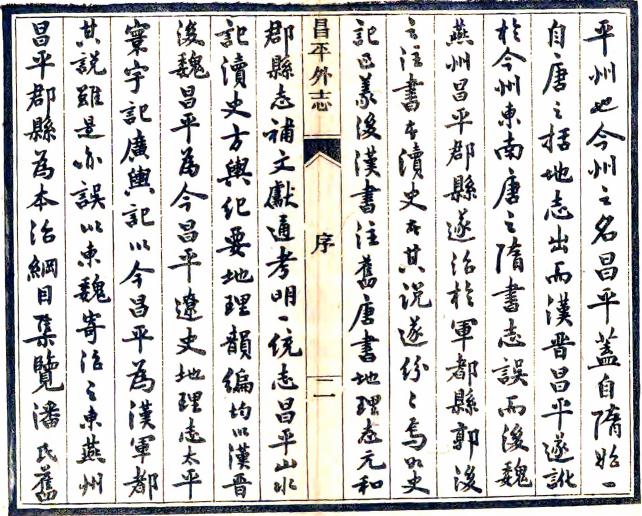 平州也今州之名昌平蓋自隋始一
自唐之括地志出而漢晉昌平遂訛
於今州東南唐之隋書志誤而後魏
燕州昌平郡縣遂治於軍都縣郭後
之注書者讀史者其説遂紛〻焉如史
記正義後漢書注舊唐書地理志元和
昌平外志
序
二
郡縣志補文獻通考明一統志昌平山水
記讀史方輿紀要地理韻編均以漢晉
後魏昌平為今昌平遼史地理志太平
寰宇記廣輿記以今昌平為漢軍都
其説雖是亦誤以東魏寄治之東燕州
昌平郡縣為本治綱目集覽潘氏舊